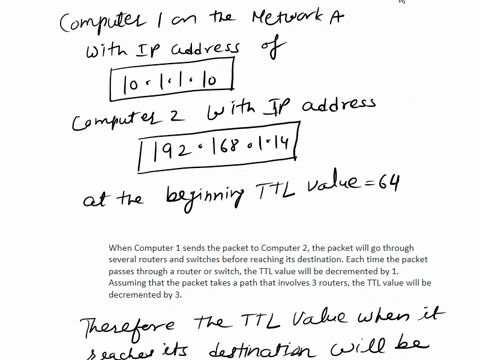 Computer 1 on the Network A
with IP address of
10.1.1.10
Computer 2 with IP address
192.168.1.14
at the beginning TTL value = 64
When Computer 1 sends the packet to Computer 2, the packet will go through
several routers and switches before reaching its destination. Each time the packet
passes through a router or switch, the TTL value will be decremented by 1.
Assuming that the packet takes a path that involves 3 routers, the TTL value will be
decremented by 3.
Therefore the TTL value when it
reaches its destination will be